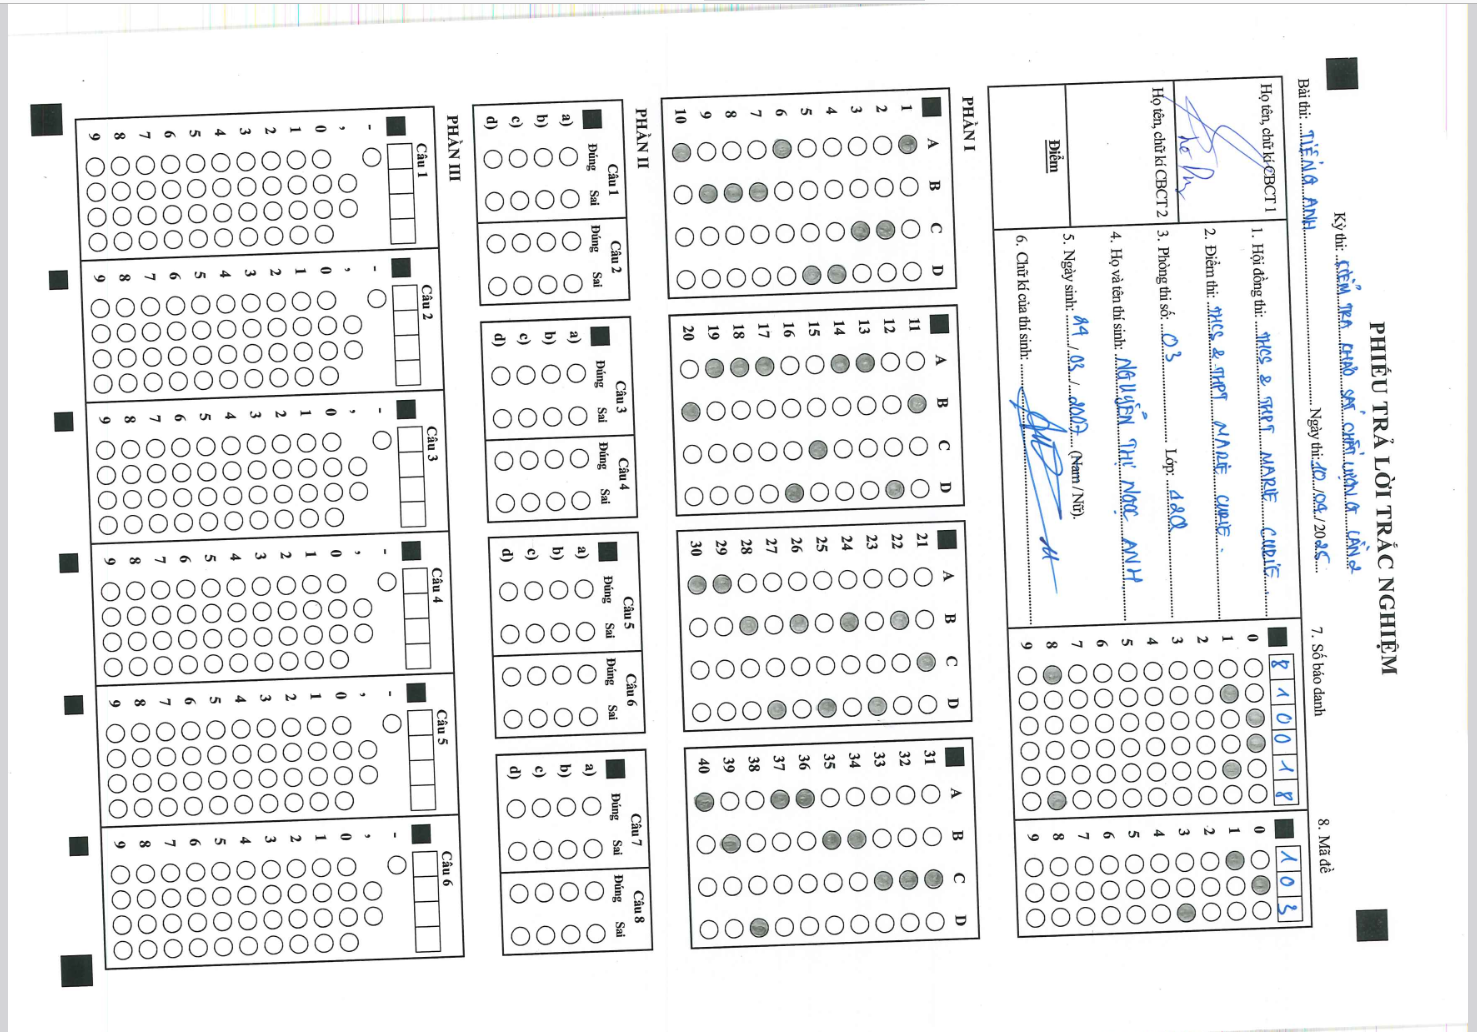 PHIẾU TRẢ LỜI TRẮC NGHIỆM
Kỳ thi: KIỂM TRA KHẢO SÁT CHẤT LƯỢNG LẦN 2
Bài thi: TIẾNG ANH Ngày thi: 10/04/2025
Họ tên, chữ kí CBCT 1
Họ tên, chữ kí CBCT 2
Điểm
1. Hội đồng thi: THCS & THPT MARIE CURIE.
2. Điểm thi: THCS & THPT MARIE CURIE.
3. Phòng thi số: 03 Lớp:
4. Họ và tên thí sinh: NGUYỄN THỊ NGỌC ANH
5. Ngày sinh: / 03 / 2007 (Nam / Nữ).
6. Chữ kí của thí sinh:
7. Số báo danh
8 1 0 0 1 8
0
1
2
3
4
5
6
7
8
9
8. Mã đề
1 0 3
0
1
2
3
4
5
6
7
8
9
PHẦN I
A B C D
1
2
3
4
5
6
7
8
9
10
A B C D
11
12
13
14
15
16
17
18
19
20
A B C D
21
22
23
24
25
26
27
28
29
30
A B C D
31
32
33
34
35
36
37
38
39
40
PHẦN II
Câu 1 Câu 2
Đúng Sai Đúng Sai
a)
b)
c)
d)
Câu 3 Câu 4
Đúng Sai Đúng Sai
a)
b)
c)
d)
Câu 5 Câu 6
Đúng Sai Đúng Sai
a)
b)
c)
d)
Câu 7 Câu 8
Đúng Sai Đúng Sai
a)
b)
c)
d)
PHẦN III
Câu 1
-
,
0
1
2
3
4
5
6
7
8
9
Câu 2
-
,
0
1
2
3
4
5
6
7
8
9
Câu 3
-
,
0
1
2
3
4
5
6
7
8
9
Câu 4
-
,
0
1
2
3
4
5
6
7
8
9
Câu 5
-
,
0
1
2
3
4
5
6
7
8
9
Câu 6
-
,
0
1
2
3
4
5
6
7
8
9